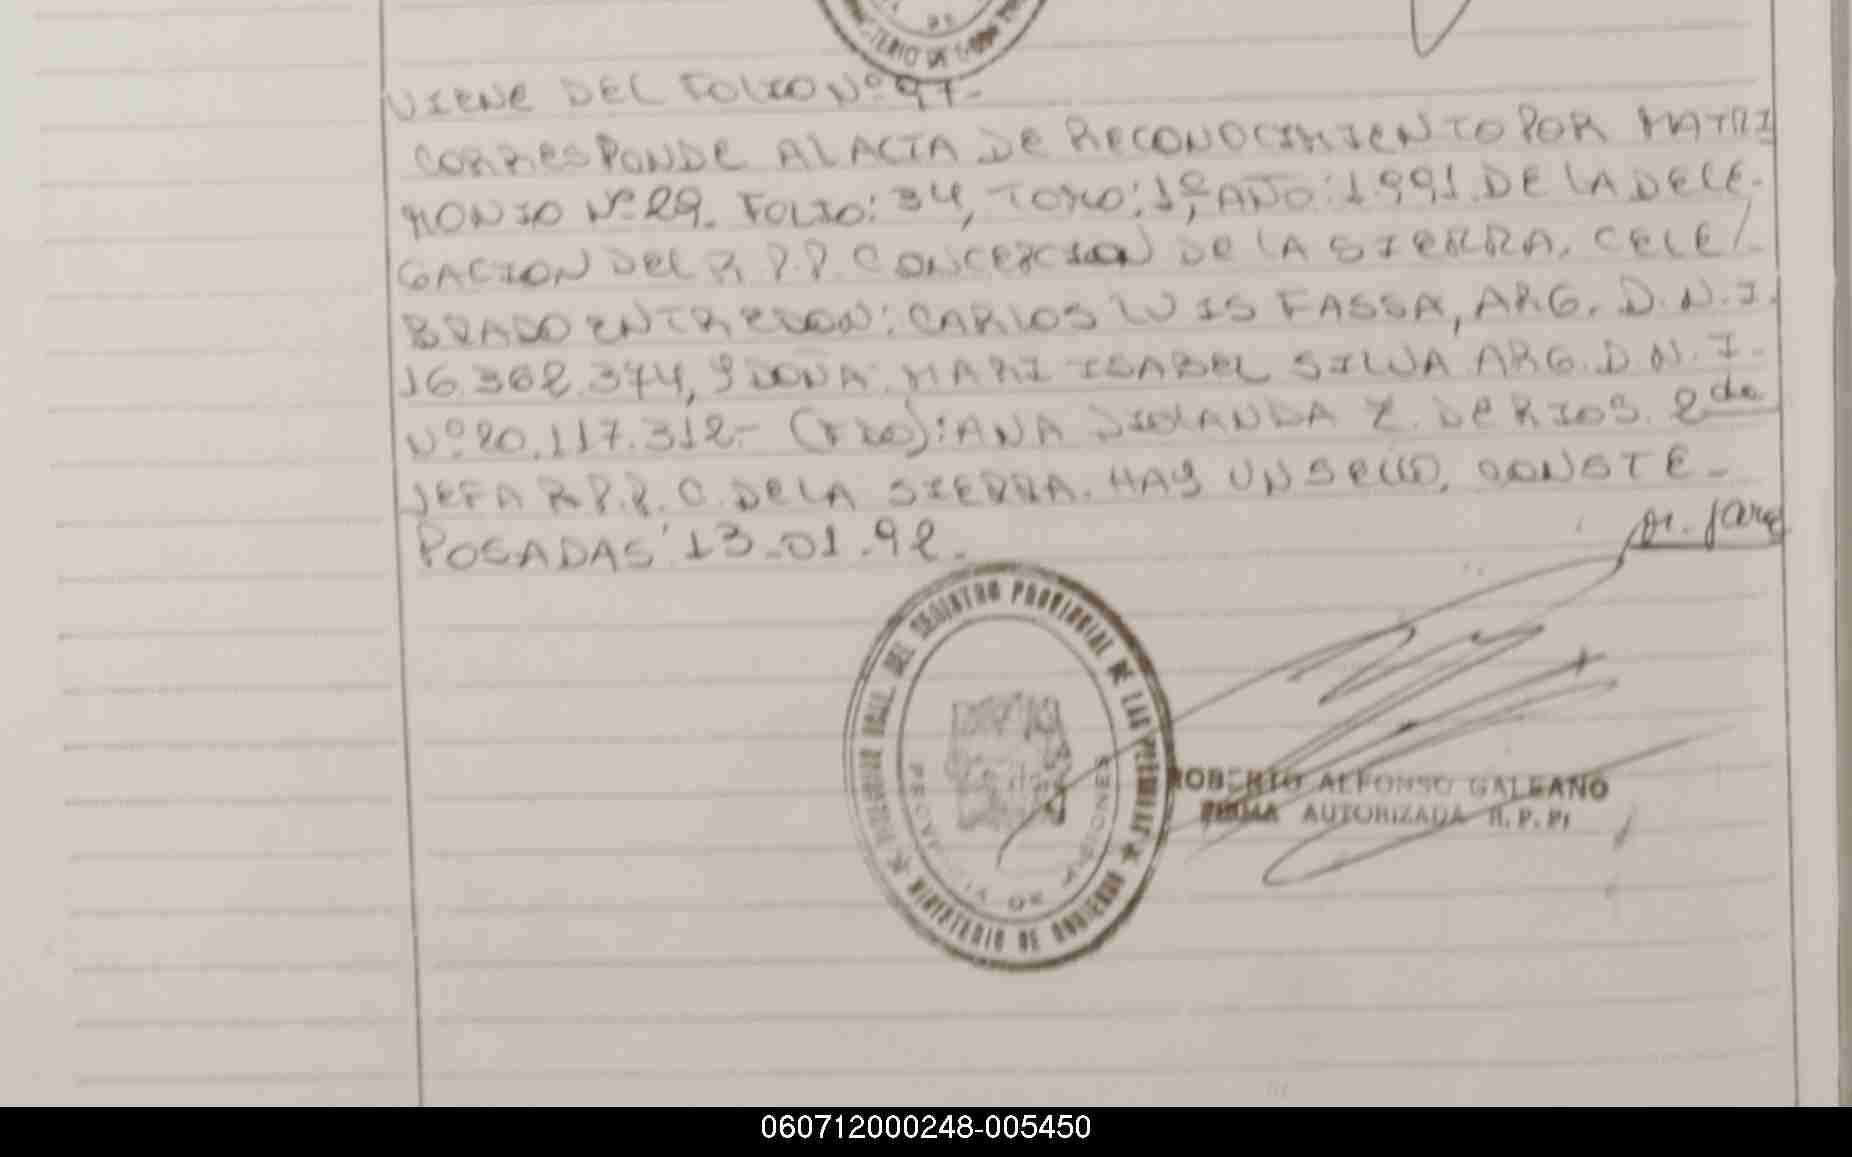 TERIO DE
VIENE DEL FOLIO Nº 97.-
CORRESPONDE AL ACTA DE RECONOCIMIENTO POR MATRI
MONIO Nº 29. FOLIO: 34, TOMO: 1º, AÑO: 1991. DE LA DELE-
GACION DEL R.P.P. CONCEPCION DE LA SIERRA. CELE/-
BRADO ENTRE DON: CARLOS LUIS FASSA, ARG. D.N.I.
16.362.374, Y DOÑA: MARI ISABEL SILVA ARG. D.N.I.
Nº 20.117.312.- (FDO): ANA Z. DE RIOS. 2da
JEFA R.P.P. C. DE LA SIERRA. HAY UN SELLO, CONSTE-
POSADAS 13-01-92.
DEL REGISTRO PROVINCIAL DE LAS PERSONAS ★ MINISTERIO DE GOBIERNO
PROVINCIA DE MISIONES
ROBERTO ALFONSO GALEANO
FIRMA AUTORIZADA R.P.P.
060712000248-005450